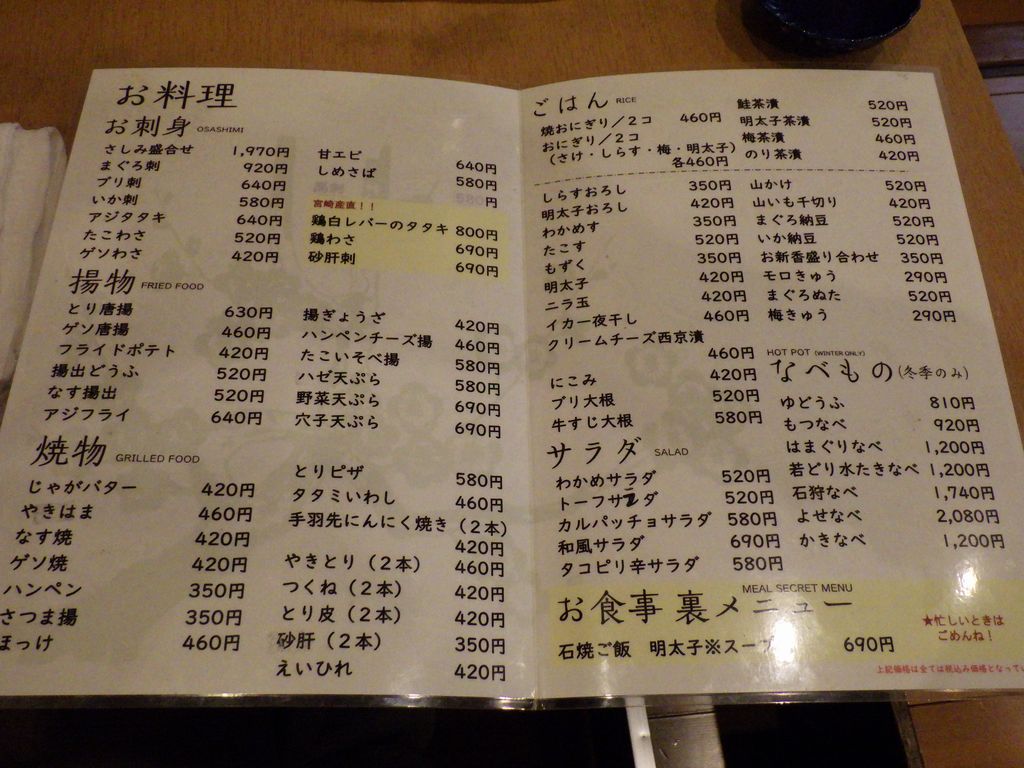 お料理
お刺身 OSASHIMI
さしみ盛合せ 1,970円
まぐろ刺 920円
ブリ刺 640円
いか刺 580円
アジタタキ 640円
たこわさ 520円
ゲソわさ 420円
甘エビ 640円
しめさば 580円
円
宮崎産直！！
鶏白レバーのタタキ 800円
鶏わさ 690円
砂肝刺 690円
揚物 FRIED FOOD
とり唐揚 630円
ゲソ唐揚 460円
フライドポテト 420円
揚出どうふ 520円
なす揚出 520円
アジフライ 640円
揚ぎょうざ 420円
ハンペンチーズ揚 460円
たこいそべ揚 580円
ハゼ天ぷら 580円
野菜天ぷら 690円
穴子天ぷら 690円
焼物 GRILLED FOOD
じゃがバター 420円
やきはま 460円
なす焼 420円
ゲソ焼 420円
ハンペン 350円
さつま揚 350円
ほっけ 460円
とりピザ 580円
タタミいわし 460円
手羽先にんにく焼き（２本）
420円
やきとり（２本） 460円
つくね（２本） 420円
とり皮（２本） 420円
砂肝（２本） 350円
えいひれ 420円
ごはん RICE
焼おにぎり／２コ 460円
おにぎり／２コ
（さけ・しらす・梅・明太子）
各460円
鮭茶漬 520円
明太子茶漬 520円
梅茶漬 460円
のり茶漬 420円
しらすおろし 350円
明太子おろし 420円
わかめす 350円
たこす 520円
もずく 350円
明太子 420円
ニラ玉 420円
イカ一夜干し 460円
クリームチーズ西京漬
460円
にこみ 420円
ブリ大根 520円
牛すじ大根 580円
山かけ 520円
山いも千切り 420円
まぐろ納豆 520円
いか納豆 520円
お新香盛り合わせ 350円
モロきゅう 290円
まぐろぬた 520円
梅きゅう 290円
サラダ SALAD
わかめサラダ 520円
トーフサラダ 520円
カルパッチョサラダ 580円
和風サラダ 690円
タコピリ辛サラダ 580円
HOT POT (WINTER ONLY)
なべもの（冬季のみ）
ゆどうふ 810円
もつなべ 920円
はまぐりなべ 1,200円
若どり水たきなべ 1,200円
石狩なべ 1,740円
よせなべ 2,080円
かきなべ 1,200円
MEAL SECRET MENU
お食事裏メニュー
石焼ご飯 明太子※スープ 690円
★忙しいときは
ごめんね！
上記価格は全ては税込み価格となってい